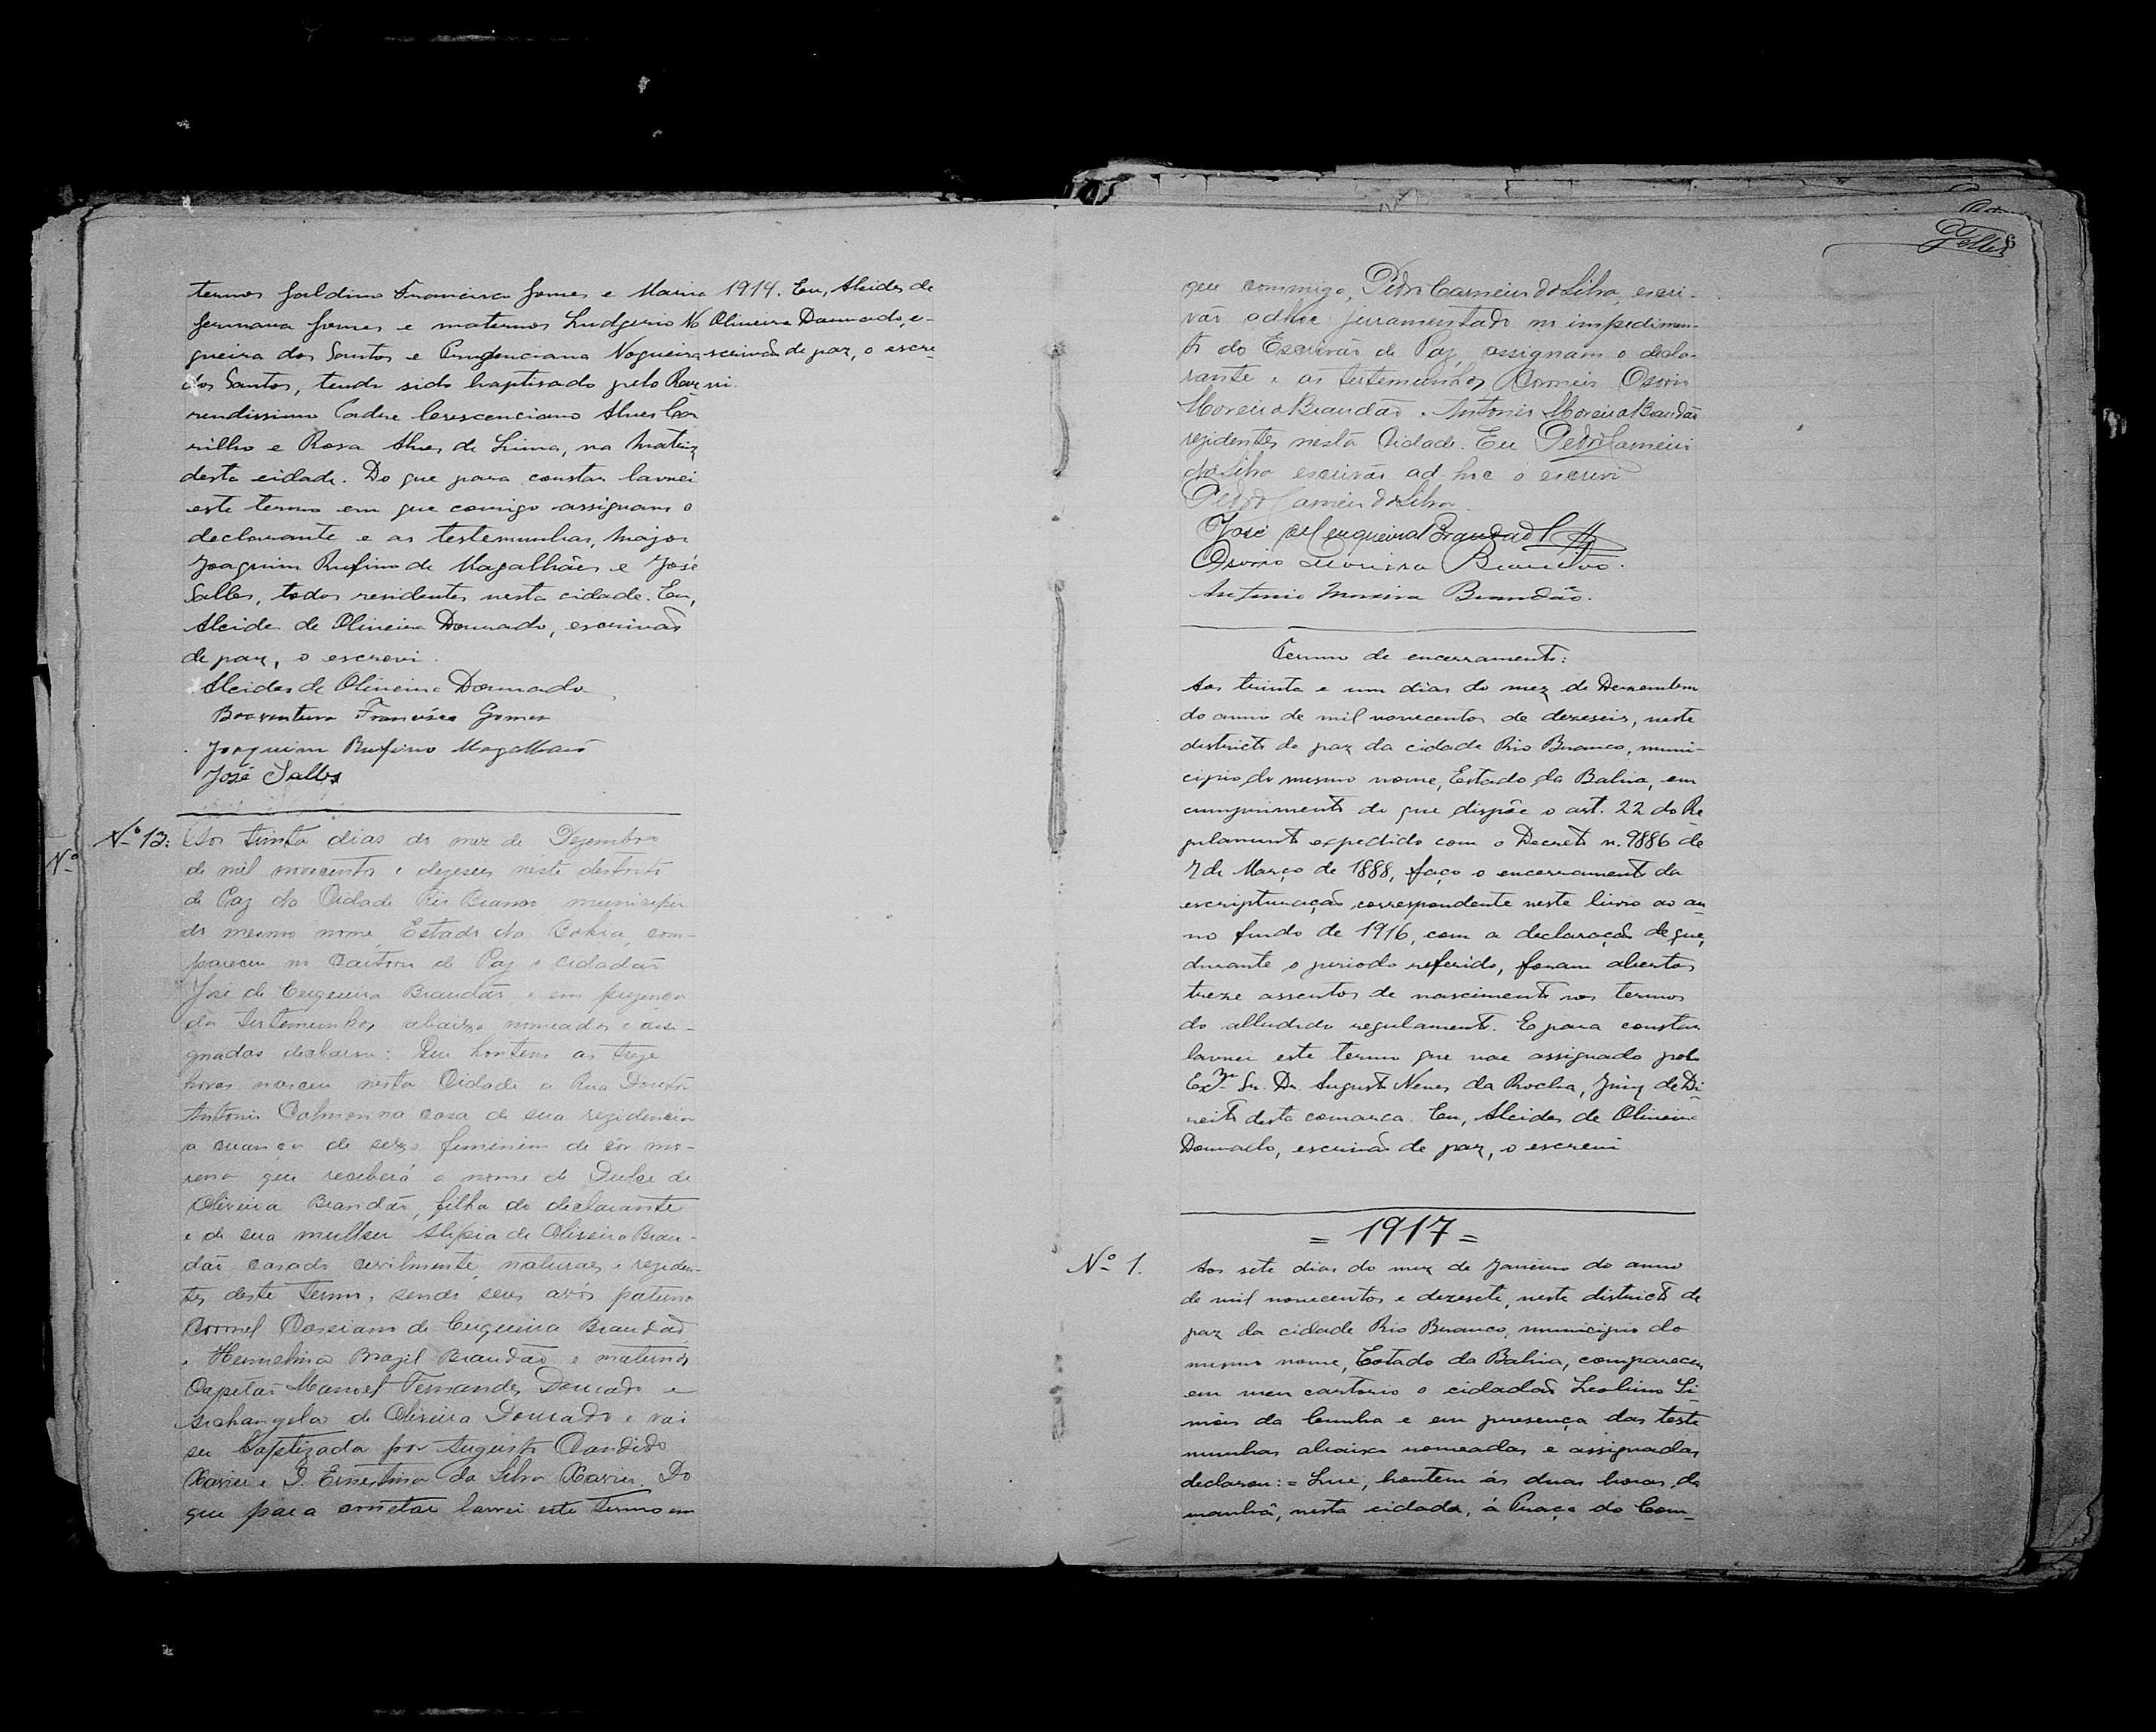 ternos Galdino Francisco Gomes e Maria
Germana Gomes e maternos Ludgerio No
gueira dos Santos e Prudenciana Nogueira
dos Santos, tendo sido baptisado pelo Reve
rendissimo Padre Crescenciano Alves Car
rilho e Rosa Alves de Lima, na Matriz
desta cidade. Do que para constar lavrei
este termo em que comigo assignam o
declarante e as testemunhas, Major
Joaquim Rufino de Magalhães e José
Salles, todos residentes nesta cidade. Eu,
Alcides de Oliveira Dourado, escrivão
de paz, o escrevi.
Alcides de Oliveira Dourado
Boaventura Francisco Gomes
Joaquim Rufino Magalhães
José Salles
1914. Eu, Alcides de
Oliveira Dourado, e-
scrivão de paz, o escre
vi.
Nº
Nº 13:
Aos trinta dias do mez de Dezembro
de mil novecentos e dezeseis neste destricto
de Paz da Cidade Rio Branco municipio
do mesmo nome, Estado da Bahia, com-
pareceu no Cartorio de Paz o cidadão
José de Cerqueira Brandão, e em prezença
das testemunhas abaixo nomeadas e assi-
gnadas declarou: Que hontem as treze
horas nasceu nesta Cidade a Rua Doutor
Antonio Calmon na casa de sua rezidencia
a creança de sexo feminino de côr mo-
rena que receberá o nome de Dulce de
Oliveira Brandão, filha do declarante
e de sua mulher Alipia de Oliveira Bran-
dão, casado civilmente, naturaes e reziden-
tes deste termo, sendo seus avós paterno
Coronel Cassiano de Cerqueira Brandão
e Hermelina Brazil Brandão e maternos
Capitão Manoel Fernandes Dourado e
Archangela de Oliveira Dourado e vai
ser baptizada por Augusto Candido
Xavier e D. Ernestina da Silva Xavier. Do
que para constar lavrei este termo em
Telles
6
que commigo, Pedro Carneiro da Silva, escri-
vão ad hoc juramentado no impedimen-
to do Escrivão de Paz, assignam o decla-
rante e as testemunhas Coroneis Osorio
Moreira Brandão e Antonio Moreira Brandão
rezidentes nesta Cidade. Eu Pedro Carneiro
da Silva escrivão ad-hoc o escrevi
Pedro Carneiro da Silva
José de Cerqueira Brandão
Osorio Moreira Brandão.
Antonio Moreira Brandão.
Termo de encerramento:
Aos trinta e um dias do mez de Dezembro
do anno de mil novecentos de dezeseis, neste
districto de paz da cidade Rio Branco, muni-
cipio do mesmo nome, Estado da Bahia, em
cumprimento do que dispõe o art. 22 do Re
gulamento expedido com o Decreto n. 9886 de
7 de Março de 1888, faço o encerramento da
escripturação correspondente neste livro ao an
no findo de 1916, com a declaração de que,
durante o periodo referido, foram abertos
treze assentos de nascimento nos termos
do alludido regulamento. E para constar
lavrei este termo que vae assignado pelo
Exmº Sr. Dr. Augusto Neves da Rocha, Juiz de Di
reito desta comarca. Eu, Alcides de Oliveira
Dourado, escrivão de paz, o escrevi
= 1917 =
Nº 1.
Aos sete dias do mez de Janeiro do anno
de mil novecentos e dezesete, neste districto de
paz da cidade Rio Branco, municipio do
mesmo nome, Estado da Bahia, compareceu
em meu cartorio o cidadão Leolino Si
mões da Cunha e em presença das teste
munhas abaixo nomeadas e assignadas
declarou: = Que, hontem ás duas horas da
manhã, nesta cidade, á Praça do Com-